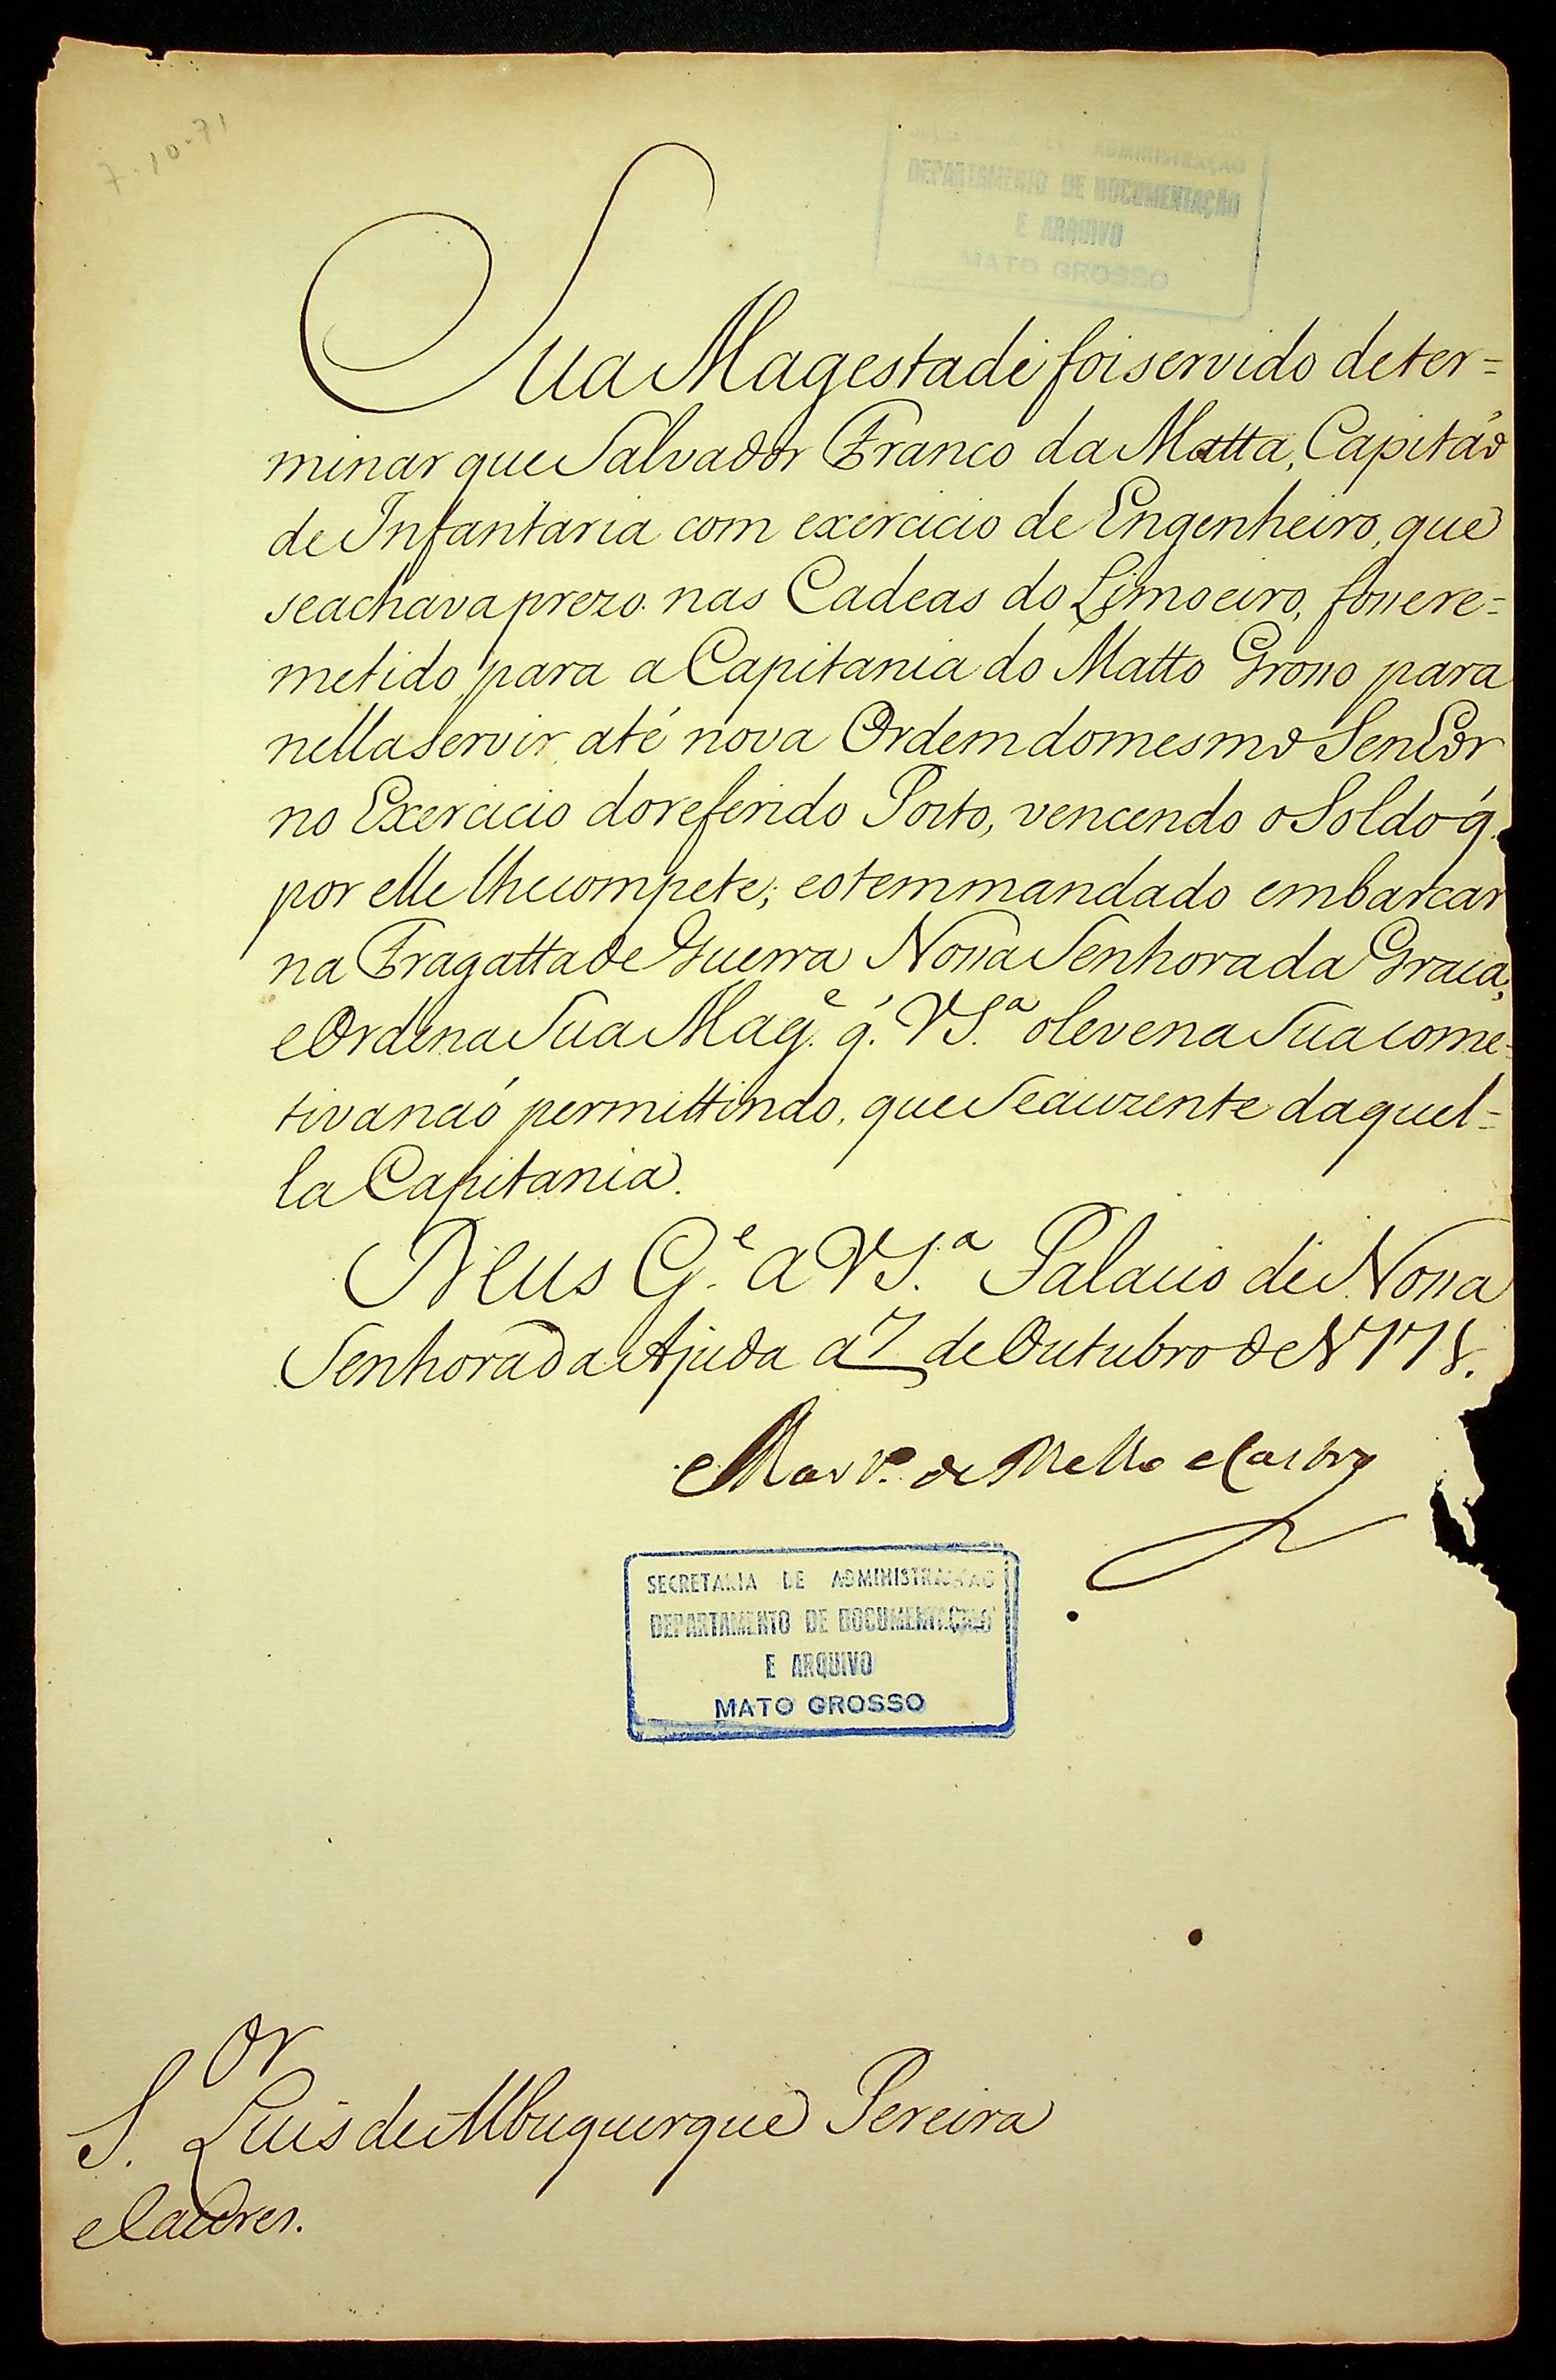 7-10-71
ADMINISTRAÇÃO
DEPARTAMENTO DE DOCUMENTAÇÃO
E ARQUIVO
MATO GROSSO
Sua Magestade foi servido deter=
minar que Salvador Franco da Matta, Capitaõ
de Infantaria com exercicio de Engenheiro, que
se achava prezo nas Cadeas do Limoeiro, fosse re=
metido para a Capitania do Matto Grosso para
nella servir até nova Ordem do mesmo Senhor
no Exercicio do referido Posto, vencendo o Soldo q̃
por elle lhe compete; e o tem mandado embarcar
na Fragatta de Guerra Nossa Senhora da Graça;
e Ordena Sua Mag.e q̃. V S.a o leve na Sua come=
tiva naõ permittindo, que Se auzente daquel=
la Capitania.
Deus G.e a V S.a Palacio de Nossa
Senhora da Ajuda a 7 de Outubro de 1771.
Mar.o de Mello e Castro
SECRETARIA DE ADMINISTRAÇÃO
DEPARTAMENTO DE DOCUMENTAÇÃO
E ARQUIVO
MATO GROSSO
S.or Luis de Albuquerque Pereira
e Caceres.